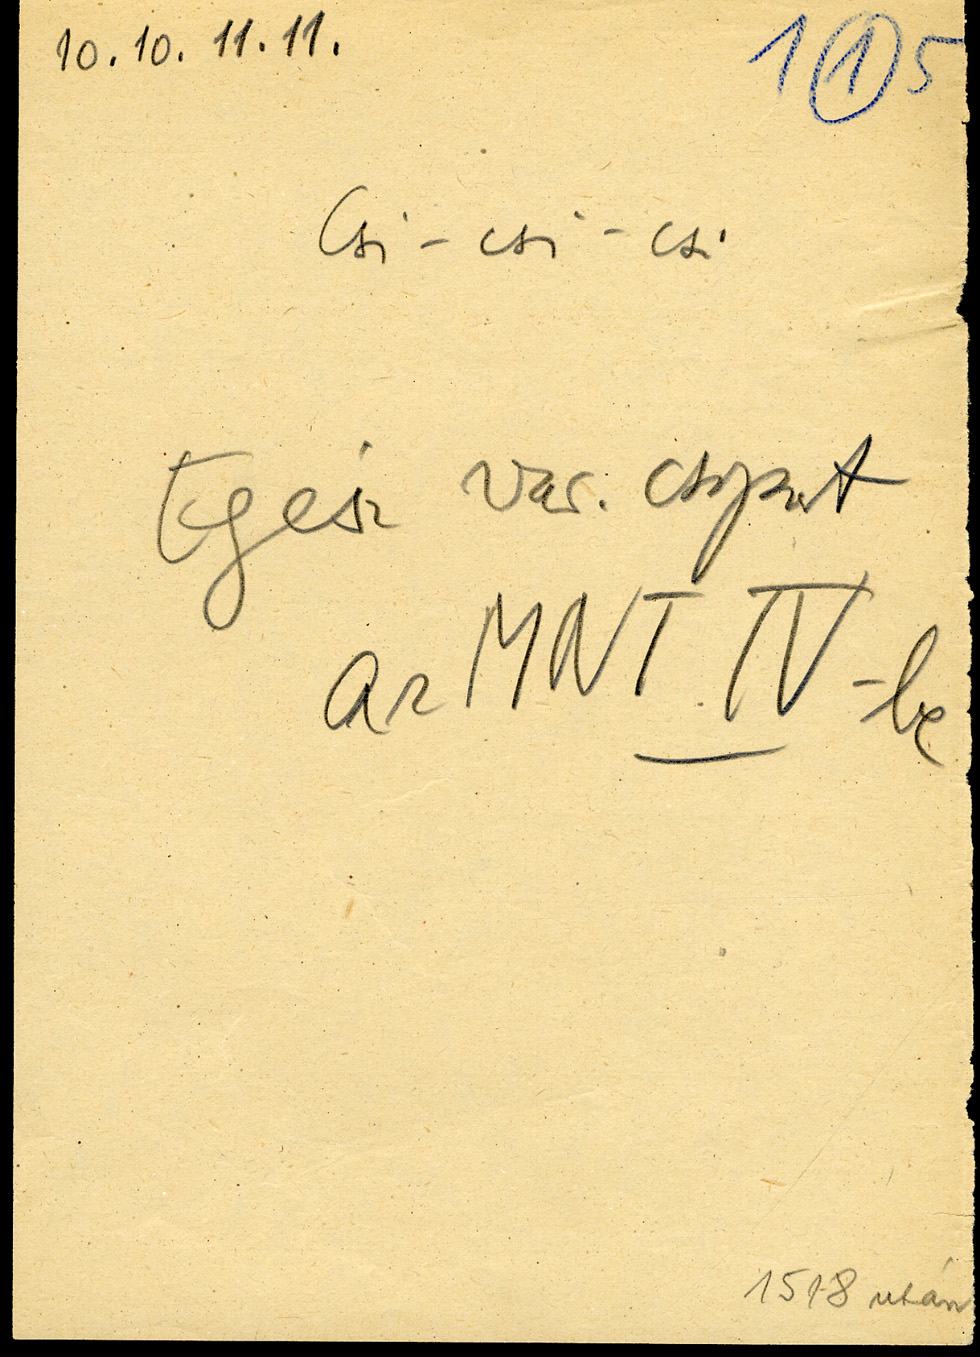 10. 10. 11. 11.
1 1 5
Csi - csi - csi
Egész var. csoport
az MNT IV -be
1518 után